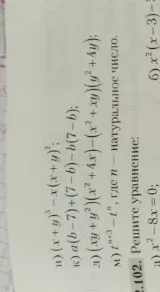 и) (x + y)³ − x(x + y)²;
к) a(b − 7) + (7 − b) − b(7 − b);
л) (xy + y²)(x² + 4x) − (x² + xy)(y² + 4y);
м) tⁿ⁺³ − tⁿ, где n — натуральное число.
.102. Решите уравнение:
а) x² − 8x = 0;
б) x²(x − 3)